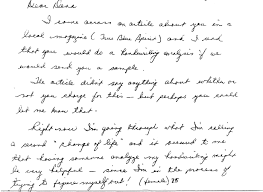 Dear Dena
I came across an article about you in a
local magazine ( News ) and I read
that you would do a handwriting analysis if we
would send you a sample.
The article didn't say anything about whether or
not you charge for this — but perhaps you could
let me know that.
Right now I'm going through what I'm calling
a second "change of life" and it seemed to me
that having someone analyze my handwriting might
be very helpful — since I'm in the process of
trying to figure myself out! (female) 35